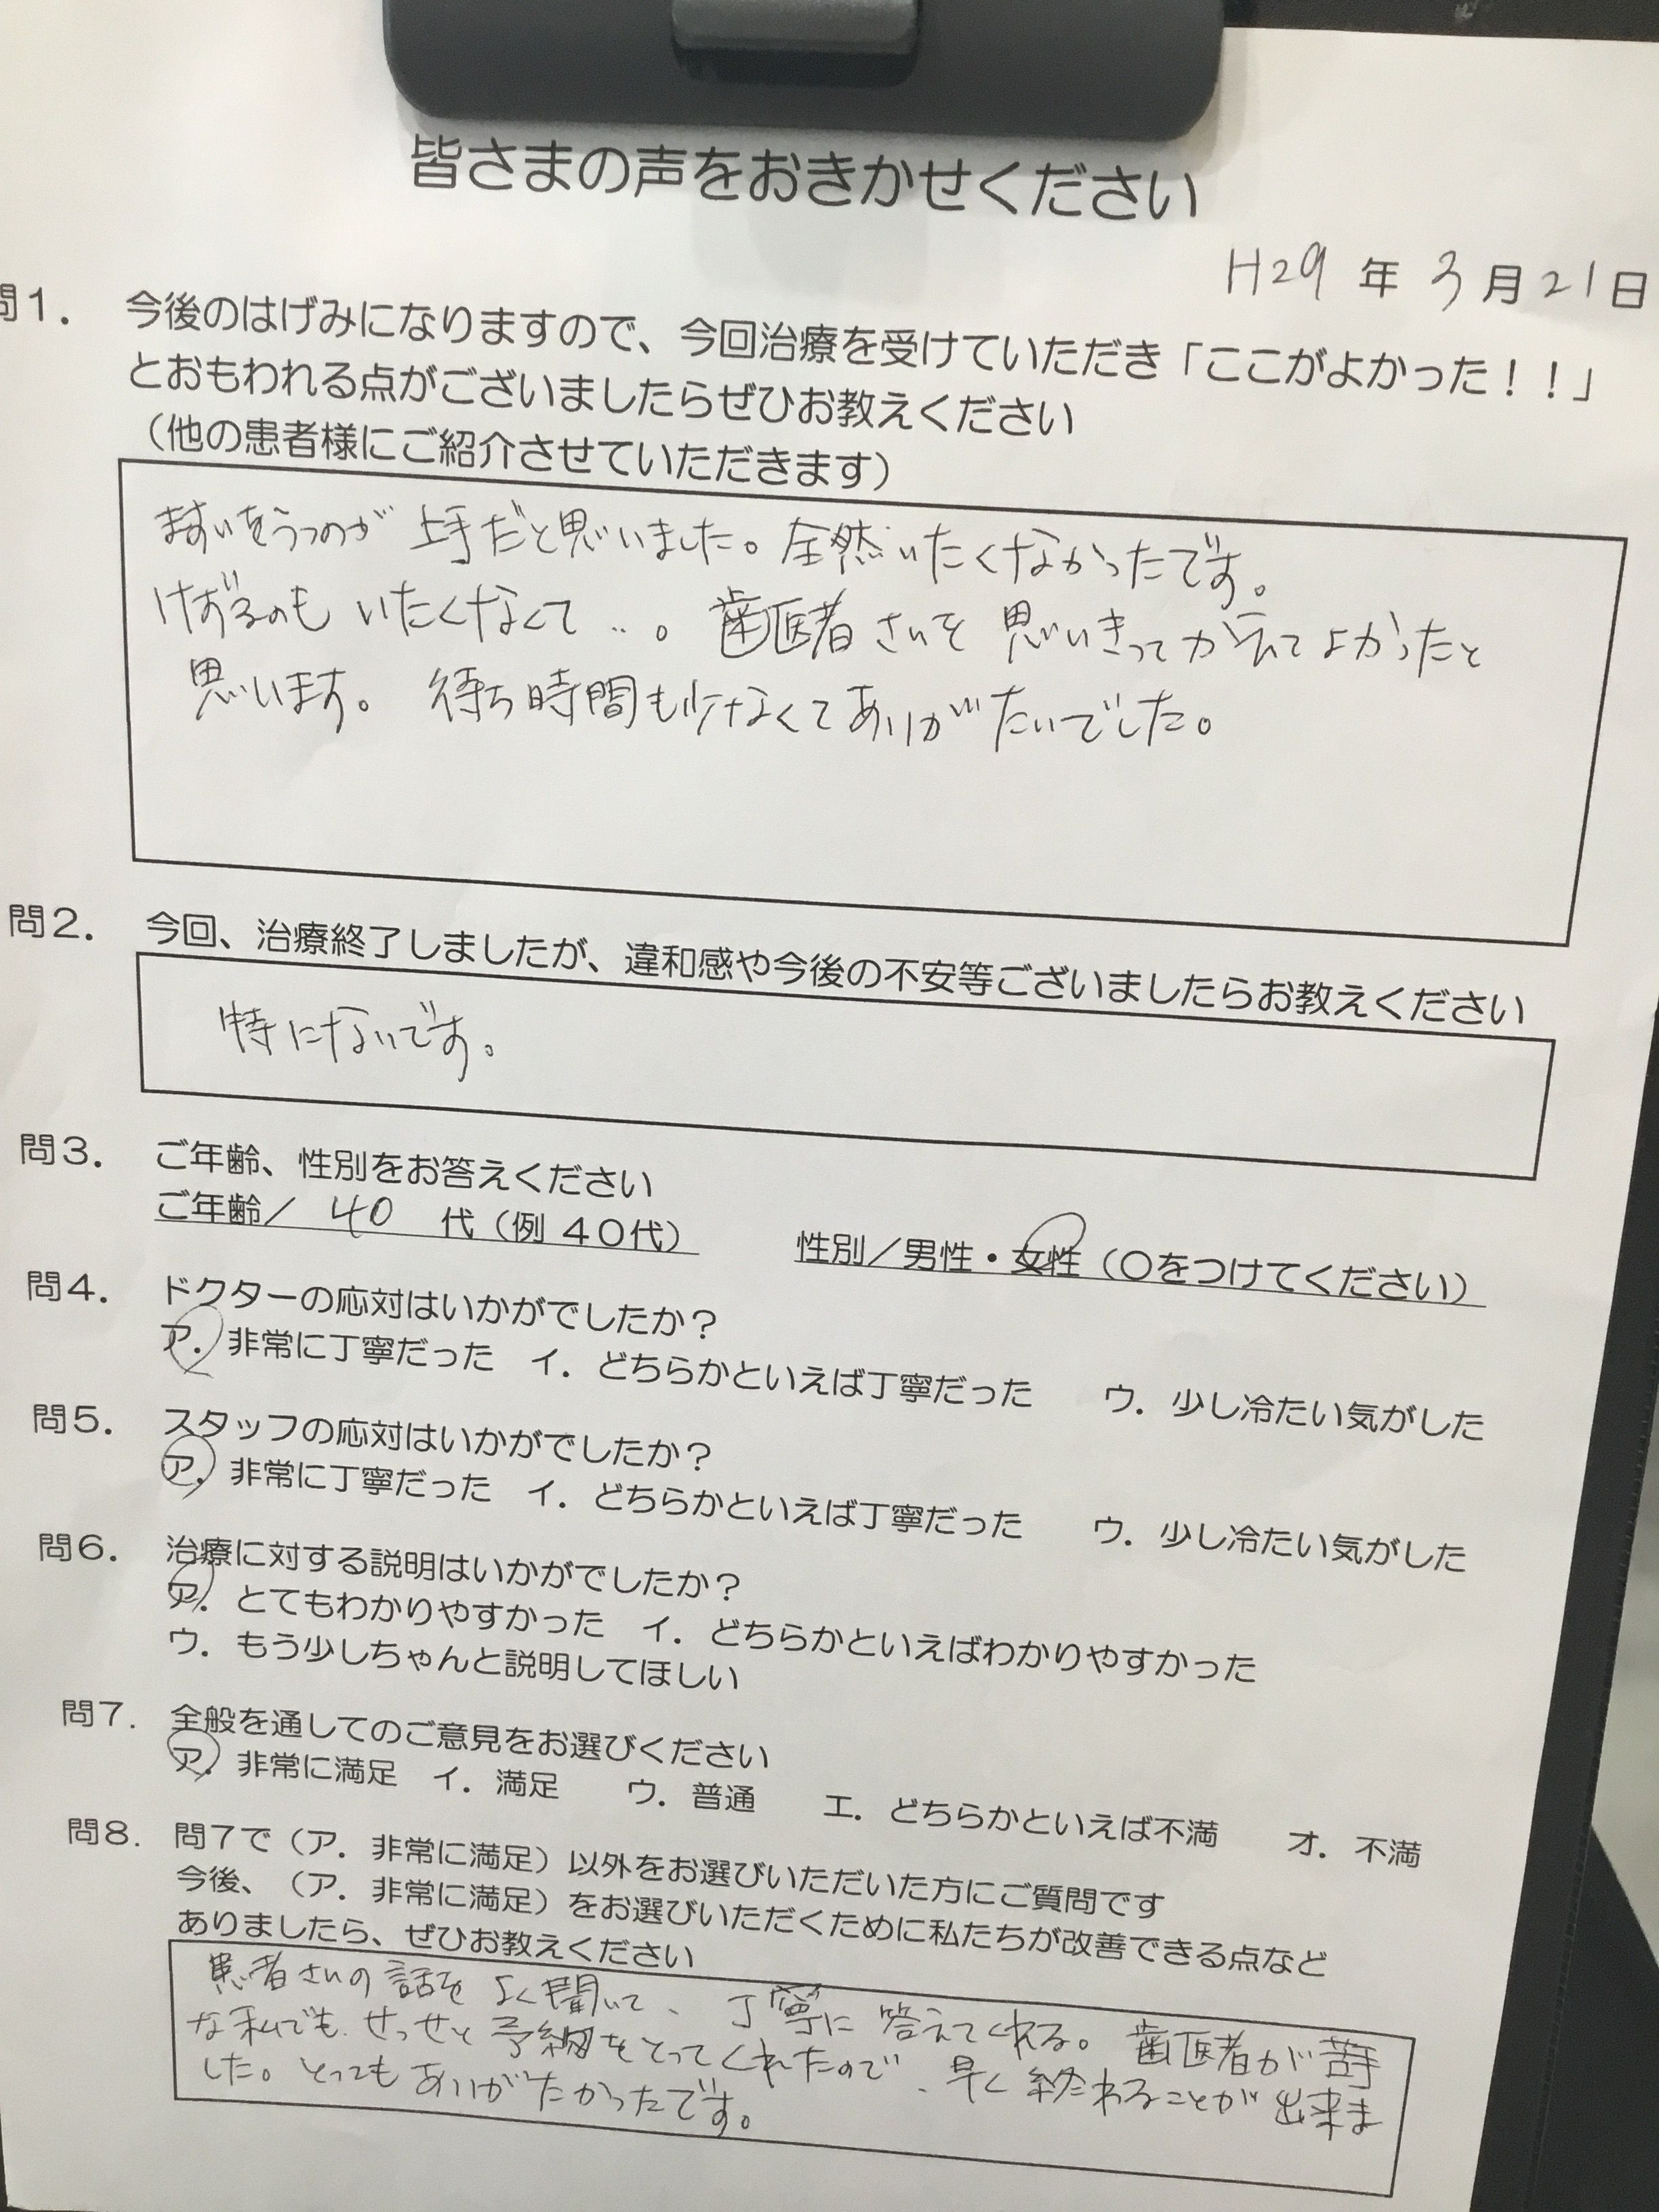 皆さまの声をおきかせください
H29 年 3 月 21 日
問1. 今後のはげみになりますので、今回治療を受けていただき「ここがよかった！！」
とおもわれる点がございましたらぜひお教えください
（他の患者様にご紹介させていただきます）
ますいをうつのが 上手だと思いました。全然いたくなかったです。
けずるのも いたくなくて…。歯医者さんを 思いきってかえてよかったと
思います。 待ち時間も少なくてありがたいでした。
問2. 今回、治療終了しましたが、違和感や今後の不安等ございましたらお教えください
特にないです。
問3. ご年齢、性別をお答えください
ご年齢／ 40 代（例 40代） 性別／男性・女性（〇をつけてください）
問4. ドクターの応対はいかがでしたか？
ア. 非常に丁寧だった イ. どちらかといえば丁寧だった ウ. 少し冷たい気がした
問5. スタッフの応対はいかがでしたか？
ア. 非常に丁寧だった イ. どちらかといえば丁寧だった ウ. 少し冷たい気がした
問6. 治療に対する説明はいかがでしたか？
ア. とてもわかりやすかった イ. どちらかといえばわかりやすかった
ウ. もう少しちゃんと説明してほしい
問7. 全般を通してのご意見をお選びください
ア. 非常に満足 イ. 満足 ウ. 普通 エ. どちらかといえば不満 オ. 不満
問8. 問7で（ア. 非常に満足）以外をお選びいただいた方にご質問です
今後、（ア. 非常に満足）をお選びいただくために私たちが改善できる点など
ありましたら、ぜひお教えください
患者さんの話を よく聞いて、丁寧に 答えてくれる。歯医者が苦手
な私でも、せっせと 予約をとってくれたので、早く 終わることが出来ま
した。とってもありがたかったです。